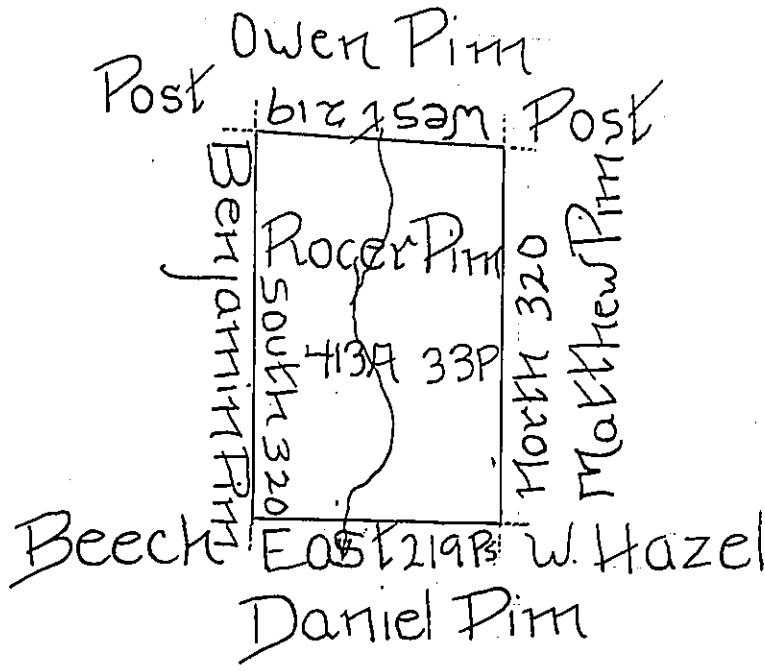 Owen Pim
Post
West 219
Post
Benjamin Pim
South 320
Roger Pim
413A 33P
North 320
Matthew Pim
Beech
East 219Ps
W. Hazel
Daniel Pim